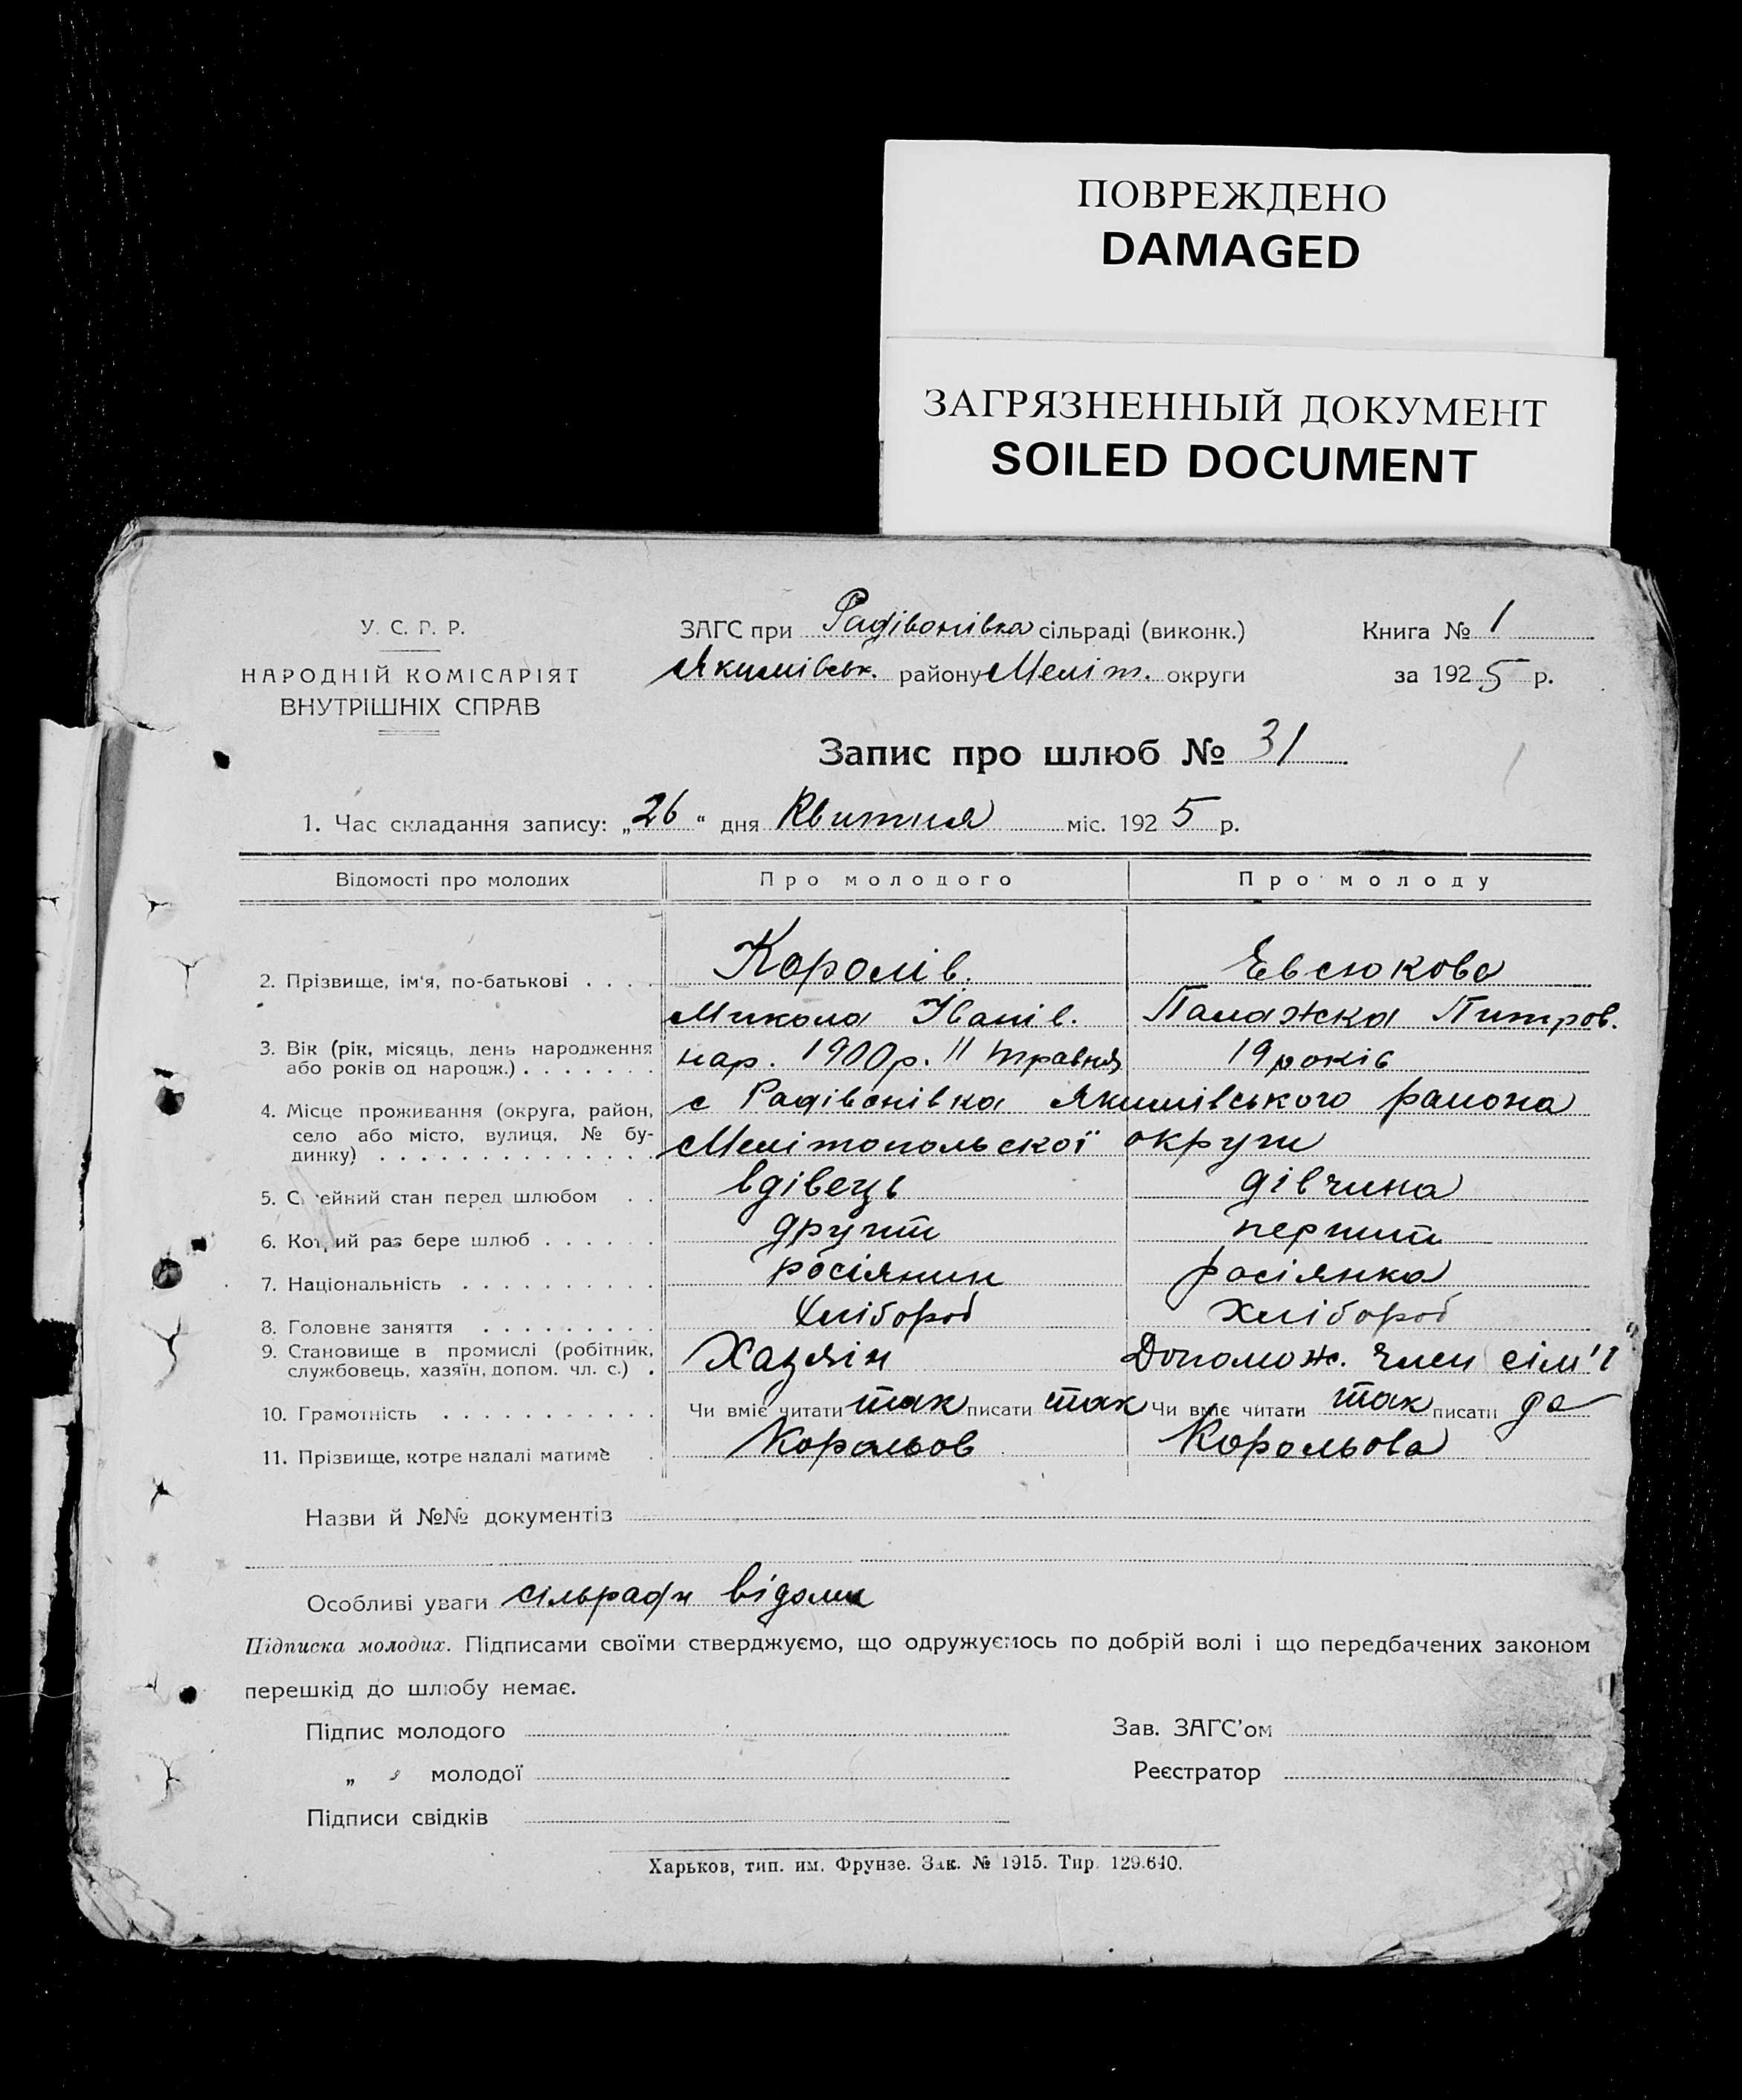 ПОВРЕЖДЕНО
DAMAGED
ЗАГРЯЗНЕННЫЙ ДОКУМЕНТ
SOILED DOCUMENT
У. С. Р. Р.
НАРОДНІЙ КОМІСАРІЯТ
ВНУТРІШНІХ СПРАВ
ЗАГС при Радівонівка сільраді (виконк.)
Якимівськ. району Меліт. округи
Книга № 1
за 1925 р.
Запис про шлюб № 31
1. Час складання запису: „26“ дня Квитня міс. 1925 р.
Відомості про молодих Про молодого Про молоду
2. Прізвище, ім'я, по-батькові . . . . Королів. Евсюкова
Микола Іванів. Палажка Питров.
3. Вік (рік, місяць, день народження
або років од народж.) . . . . . . . нар. 1900р. 11 травня 19 років
4. Місце проживання (округа, район, с Радівонівка Якимівського района
село або місто, вулиця, № бу-
динку) . . . . . . . . . . . . . . Мелітопольскої округи
5. Сімейний стан перед шлюбом . . вдівець дівчина
6. Котрий раз бере шлюб . . . . . . другий перший
7. Національність . . . . . . . . . . росіянин росіянка
8. Головне заняття . . . . . . . . . хлібороб хлібороб
9. Становище в промислі (робітник,
службовець, хазяїн, допом. чл. с.) . Хазяін Допомож. член сім'ї
10. Грамотність . . . . . . . . . . . Чи вміє читати так писати так Чи вміє читати так писати да
11. Прізвище, котре надалі матиме . Корольов Корольова
Назви й №№ документів
Особливі уваги сільради відоми
Підписка молодих. Підписами своїми стверджуємо, що одружуємось по добрій волі і що передбачених законом
перешкід до шлюбу немає.
Підпис молодого
Зав. ЗАГС'ом
„ молодої
Реєстратор
Підписи свідків
Харьков, тип. им. Фрунзе. Зак. № 1915. Тир. 129.640.